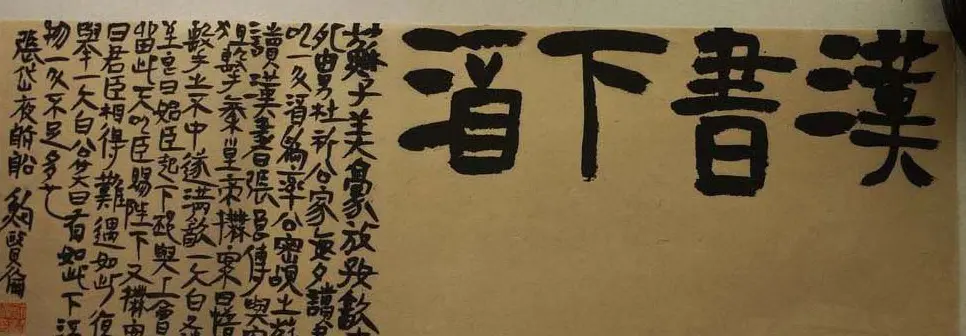 漢書下酒
蘇子美豪放好飲
外舅杜祁公家每夕讀書
以一斗酒為率公密覘之蘇
讀漢書張良傳與客
狙擊秦皇帝撫案曰惜
擊之不中遂滿飲一大白又
至良曰始臣起下邳與上會
留此天以臣賜陛下又撫案
曰君臣相得難遇如此復
舉一大白公笑曰有如此下酒
物一斗不足多也
張岱夜航船 鮑賢倫